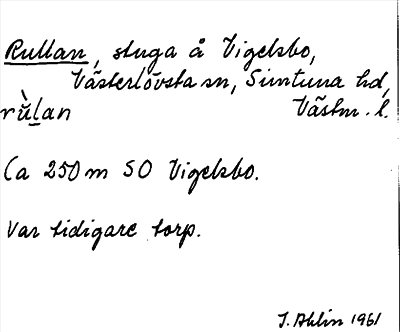 Rullan, stuga å Vigelsbo,
Västerlövsta sn, Simtuna hd,
rùl̲an Västm. l.
Ca 250 m SO Vigelsbo.
Var tidigare torp.
J. Ahlin 1961